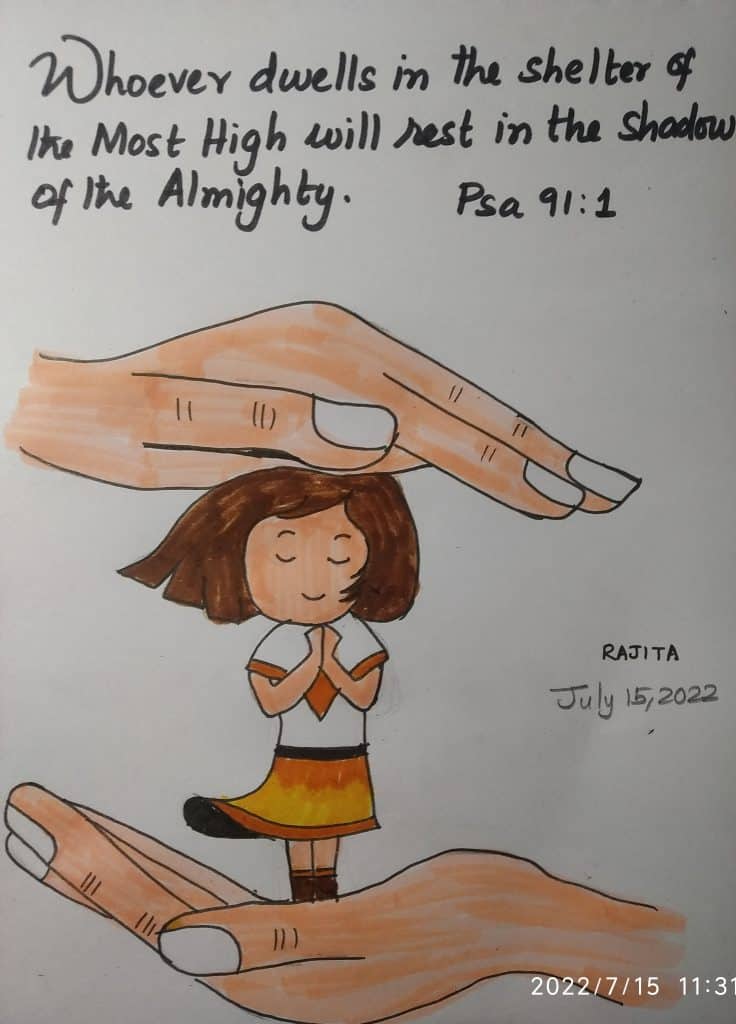 Whoever dwells in the shelter of
the Most High will rest in the shadow
of the Almighty. Psa 91:1
RAJITA
July 15, 2022
2022/7/15 11:31